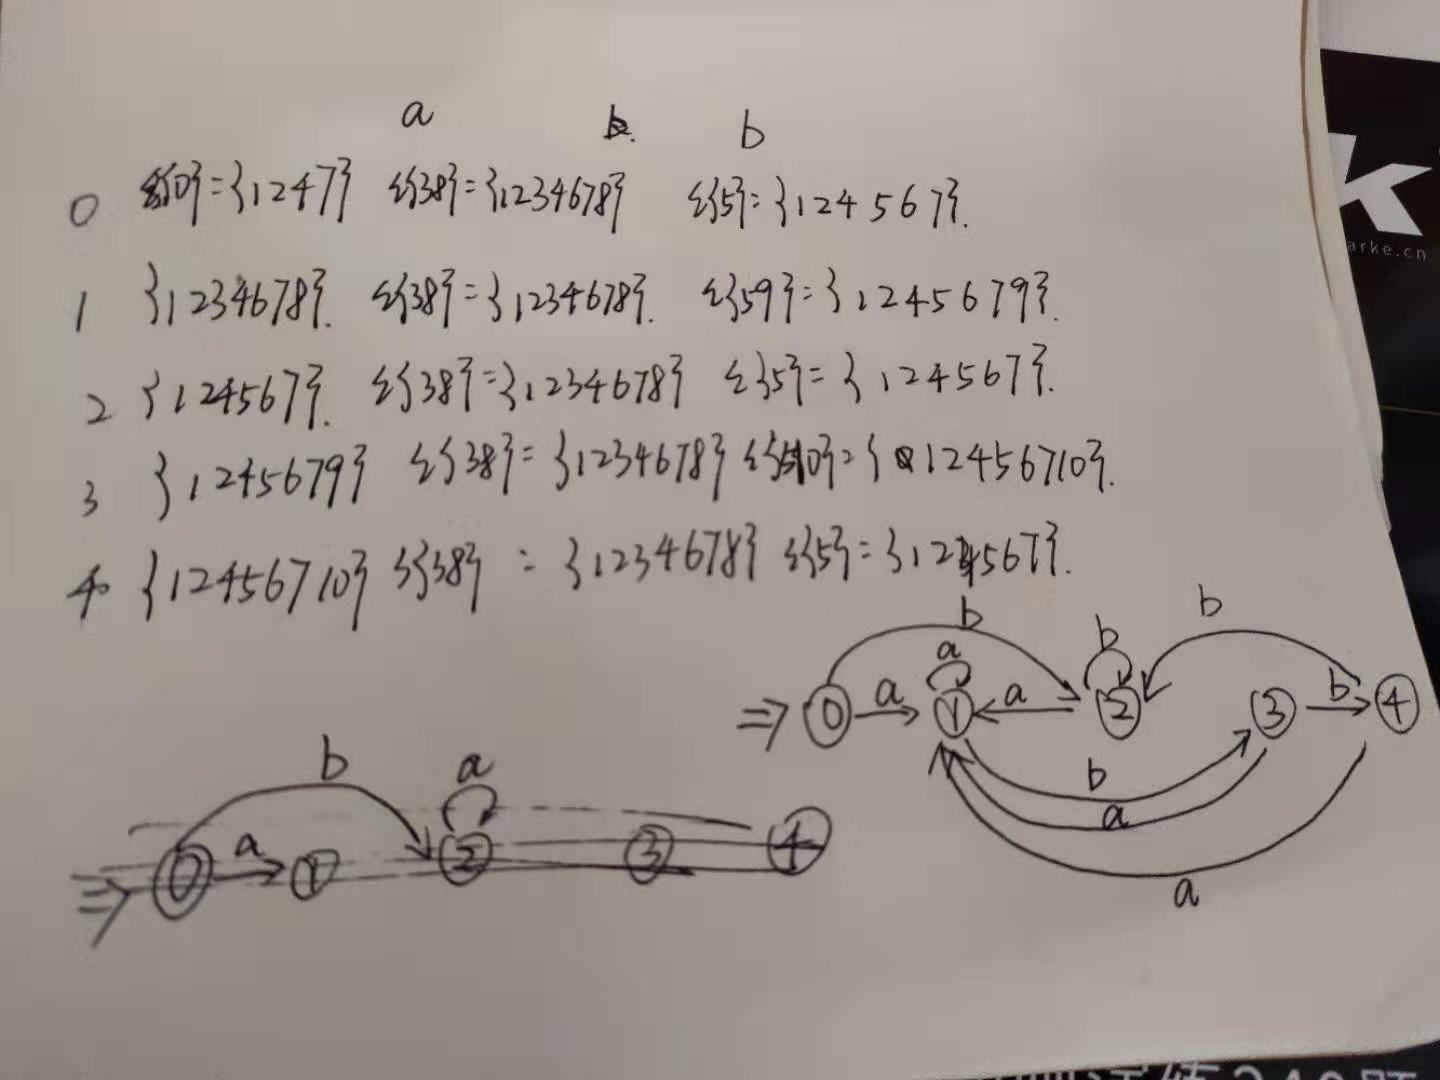 a b. b
0 ε{0}={1247} ε{38}={1234678} ε{5}={124567}.
1 {1234678}. ε{38}={1234678}. ε{59}={1245679}.
2 {124567}. ε{38}={1234678} ε{5}={124567}.
3 {1245679} ε{38}={1234678} ε{510}={12456710}.
4 {12456710} ε{38}={1234678} ε{5}={124567}.
b b b
a
⇒ 0 a 1 a 2 3 b 4
b
a
a
b a
a
⇒ 0 1 2 3 4
k
arke.cn